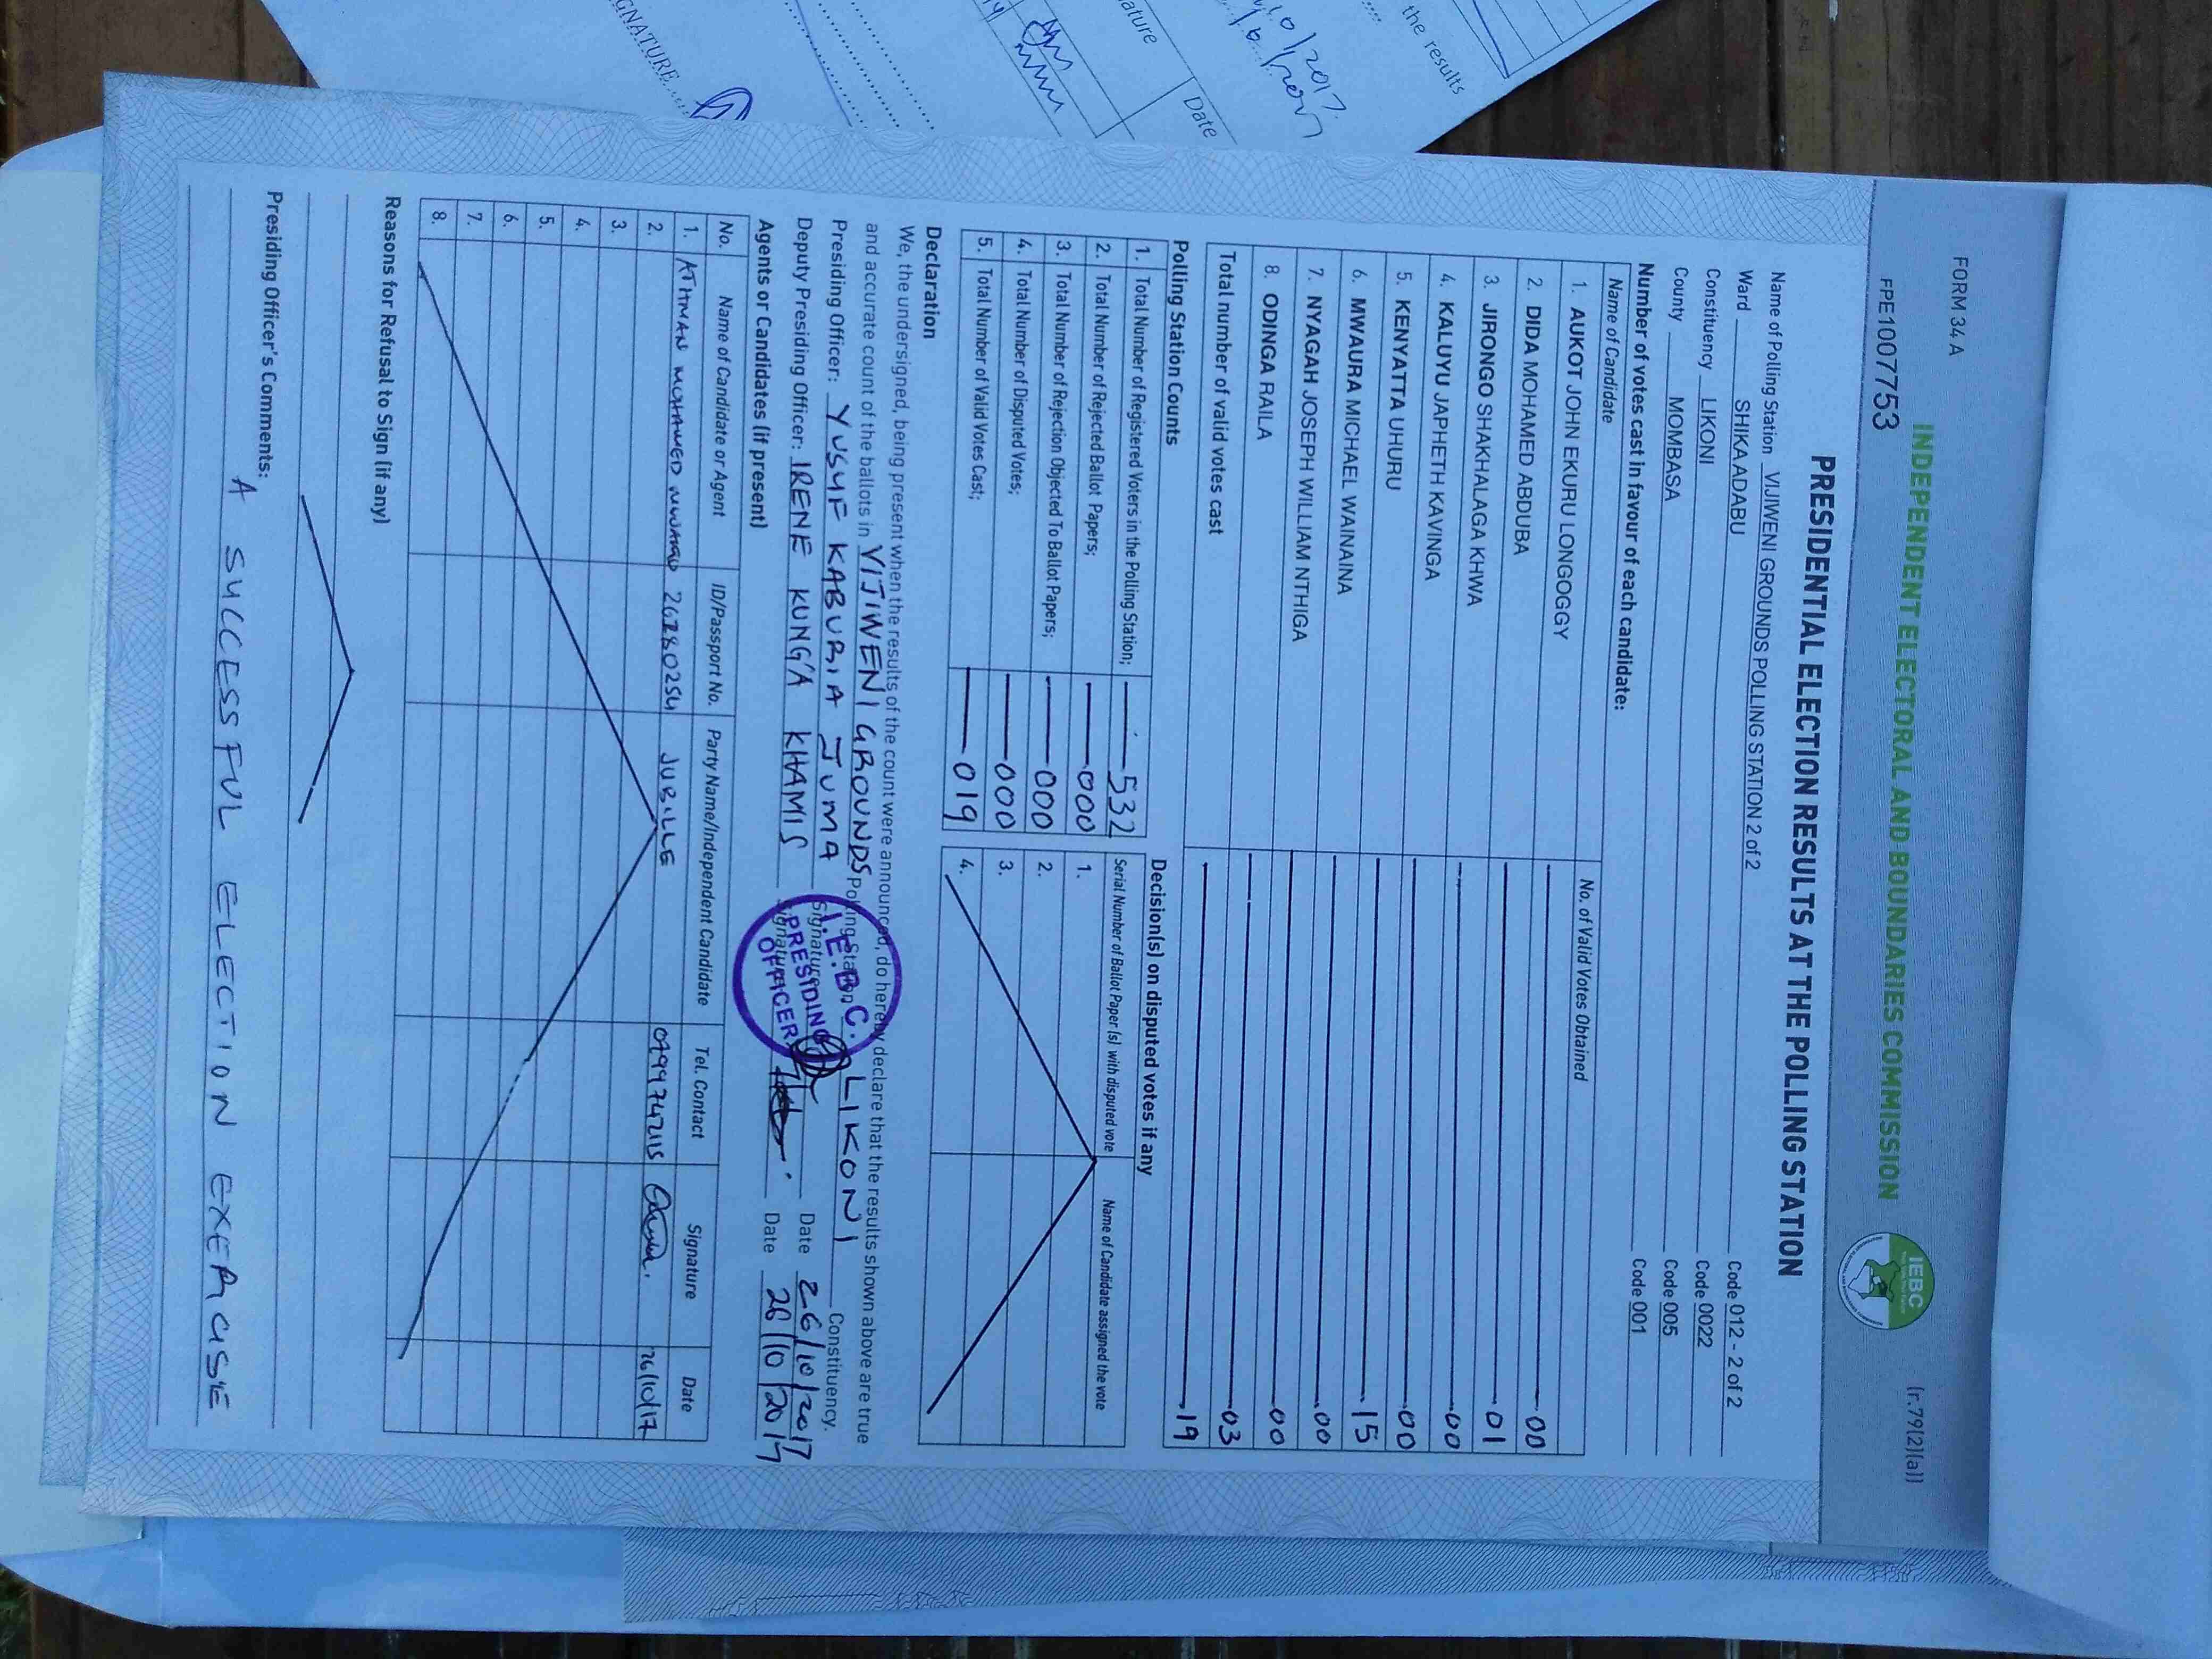 FORM 34 A
(r.79(2)(a))
INDEPENDENT ELECTORAL AND BOUNDARIES COMMISSION
IEBC
FPE1007753
PRESIDENTIAL ELECTION RESULTS AT THE POLLING STATION
Name of Polling Station VIJIWENI GROUNDS POLLING STATION 2 of 2 Code 012 - 2 of 2
Ward SHIKA ADABU Code 0022
Constituency LIKONI Code 005
County MOMBASA Code 001
Number of votes cast in favour of each candidate:
Name of Candidate No. of Valid Votes Obtained
1. AUKOT JOHN EKURU LONGOGGY 00
2. DIDA MOHAMED ABDUBA 01
3. JIRONGO SHAKHALAGA KHWA 00
4. KALUYU JAPHETH KAVINGA 00
5. KENYATTA UHURU 15
6. MWAURA MICHAEL WAINAINA 00
7. NYAGAH JOSEPH WILLIAM NTHIGA 00
8. ODINGA RAILA 03
Total number of valid votes cast 19
Polling Station Counts
1. Total Number of Registered Voters in the Polling Station; 532
2. Total Number of Rejected Ballot Papers; 000
3. Total Number of Rejection Objected To Ballot Papers; 000
4. Total Number of Disputed Votes; 000
5. Total Number of Valid Votes Cast; 019
Decision(s) on disputed votes if any
Serial Number of Ballot Paper (s) with disputed vote Name of Candidate assigned the vote
1.
2.
3.
4.
Declaration
We, the undersigned, being present when the results of the count were announced, do hereby declare that the results shown above are true
and accurate count of the ballots in VIJIWENI GROUNDS Polling Station LIKONI Constituency.
Presiding Officer: YUSUF KABURIA JUMA Signature Date 26/10/2017
Deputy Presiding Officer: IRENE KUNG'A KHAMIS Signature Date 26/10/2017
I.E.B.C.
PRESIDING
OFFICER
Agents or Candidates (if present)
No. Name of Candidate or Agent ID/Passport No. Party Name/Independent Candidate Tel. Contact Signature Date
1. ATHMAN MOHAMED 26780254 JUBILLE 26/10/17
2.
3.
4.
5.
6.
7.
8.
Reasons for Refusal to Sign (if any)
Presiding Officer's Comments:
A SUCCESSFUL ELECTION EXERCISE
the results
10/2017
ature
Date
GNATURE